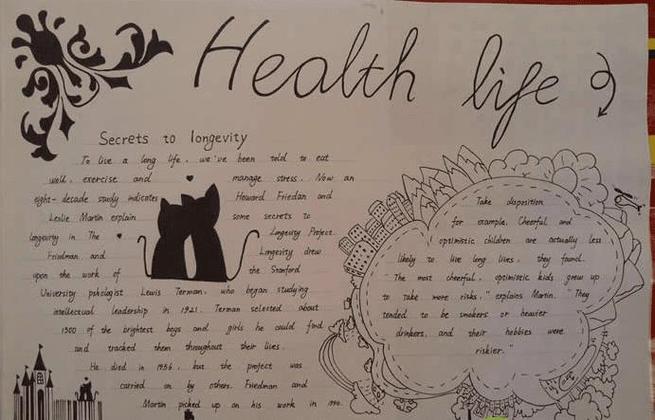 Health life
Secrets to longevity
To live a long life, we've been told to eat
well, exercise and manage stress. Now an
eight-decade study indicates Howard Friedan and
Leslie Martin explain some secrets to
longevity in The Longevity Project.
Friedman and Longevity drew
upon the work of the Stanford
University pshologist Lewis Terman, who began studying
intellectual leadership in 1921. Terman selected about
1500 of the brightest boys and girls he could find
and tracked them throughout their lives.
He died in 1956, but the project was
carried on by others. Friedman and
Martin picked up on his work in 1990.
Take disposition
for example. Cheerful and
optimistic children are actually less
likely to live long lives, they found.
"The most cheerful, optimistic kids grew up
to take more risks," explains Martin. "They
tended to be smokers or heavier
drinkers, and their hobbies were
riskier."